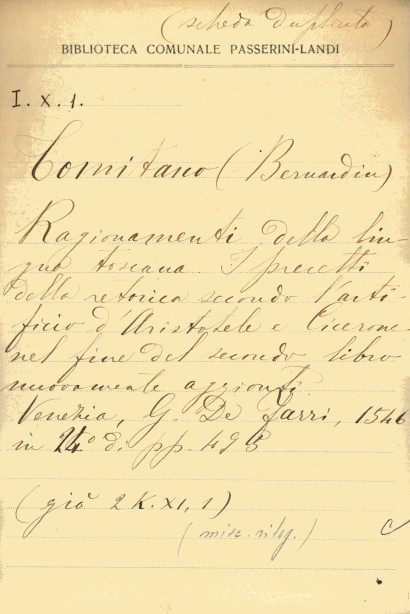 (scheda duplicata)
BIBLIOTECA COMUNALE PASSERINI-LANDI
I. X. 1.
Tomitano (Bernardin)
Ragionamenti della lin
gua toscana. I precetti
della retorica secondo l'arti-
ficio d'Aristotele e Cicerone
nel fine del secondo libro
nuovamente aggionti.
Venezia, G. De Farri, 1546
in 24° di pp. 495
(già 2 K. XI, 1)
(misc. rileg.)